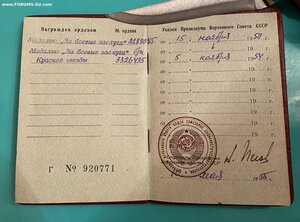 www.FORUMS-SU.com
Награжден орденом № ордена
Медалью „За боевые заслуги"
Медалью „За боевые заслуги" б/н
Красной звезды 3326435
г № 920771
Указом Президиума Верховного Совета СССР
от 15 ноября 1950
от 5 ноября 1954
от 19
от 19
от 19
от 19
19
19
мая 1955